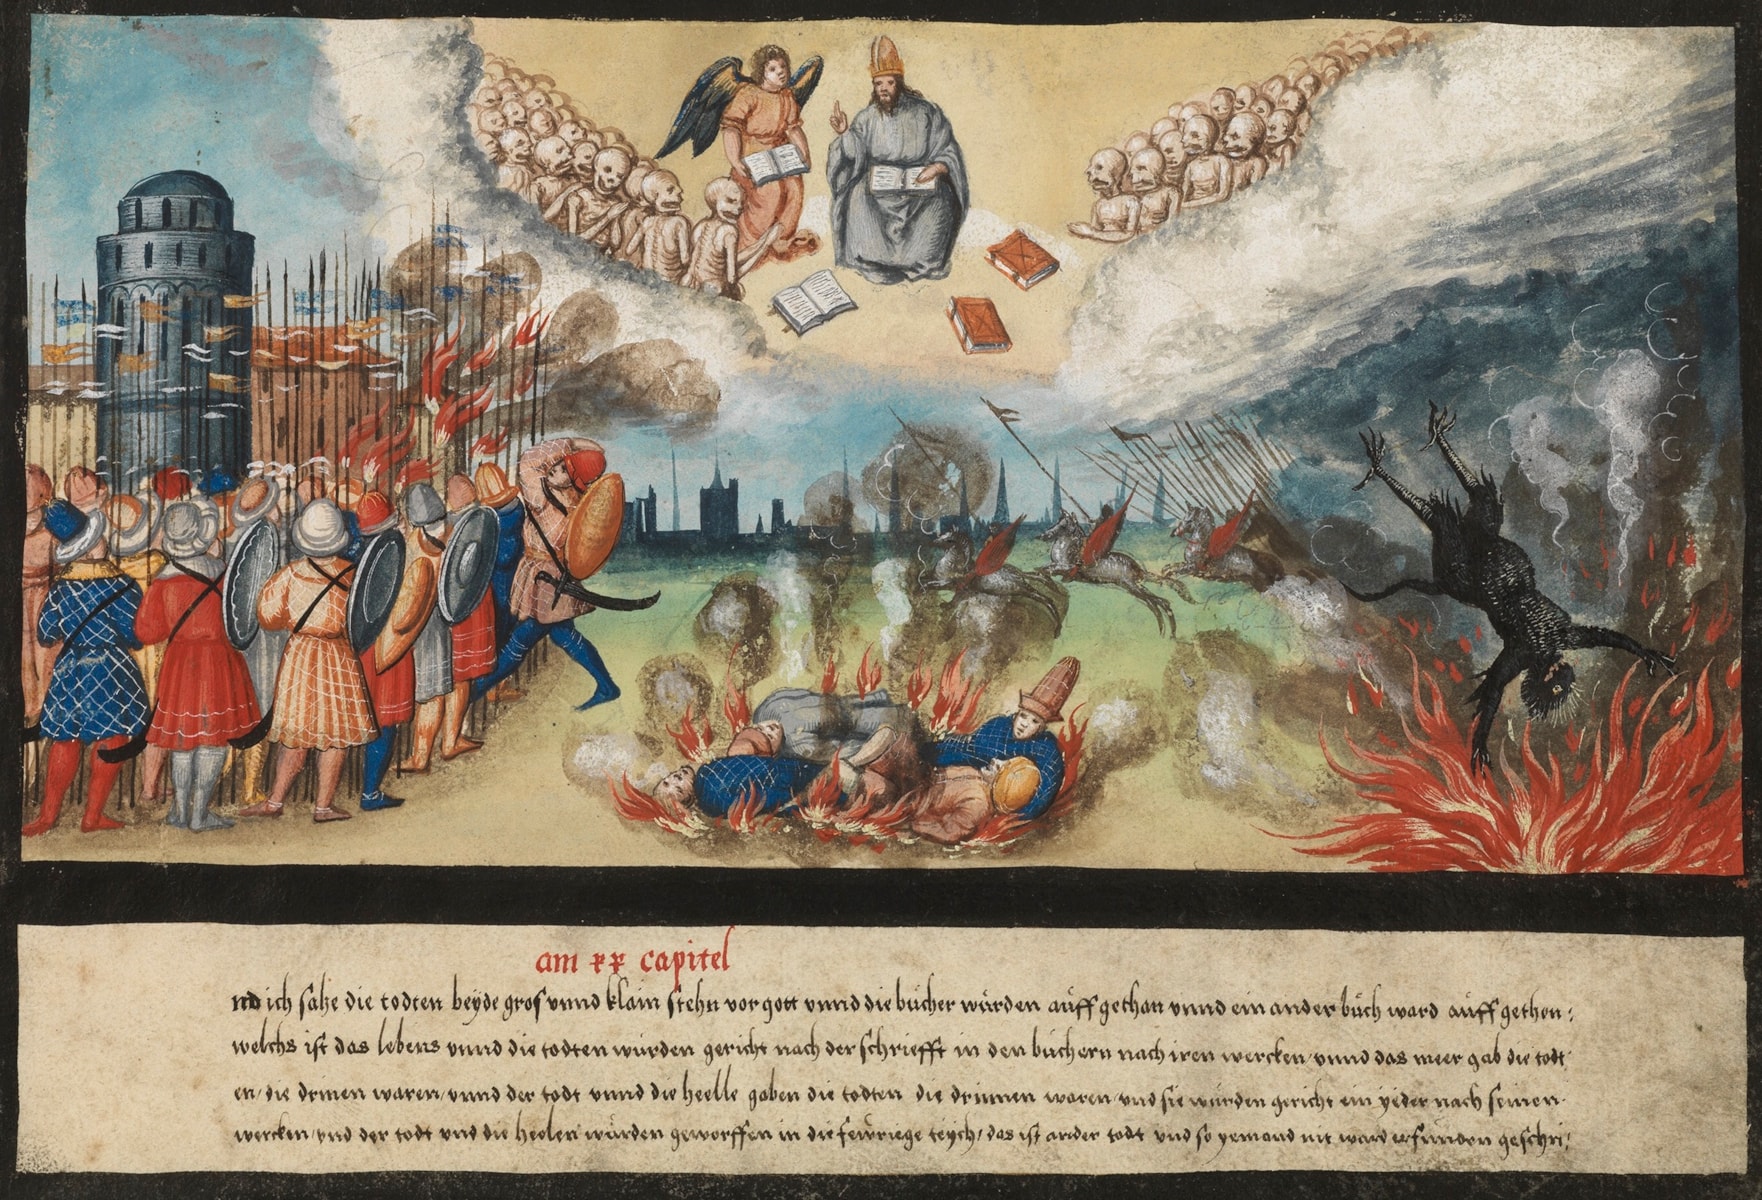 am xx capitel
nd ich sahe die todten beyde gros vnnd klain stehn vor gott vnnd die bücher würden aüff gethan vnnd ein ander büch ward aüff gethon:
welchs ist das lebens vnnd die todten würden gericht nach der schriefft in den büchern nach iren wercken vnnd das meer gab die todt
en/ die drinen waren/ vnnd der todt vnnd die heelle gaben die todten die drinnen waren/ vnd sie würden gericht ein yeder nach seinen
wercken/ vnd der todt vnd die heelen würden geworffen in die fewriege teych/ das ist ander todt vnd so yemand nit ward erfunden geschri: